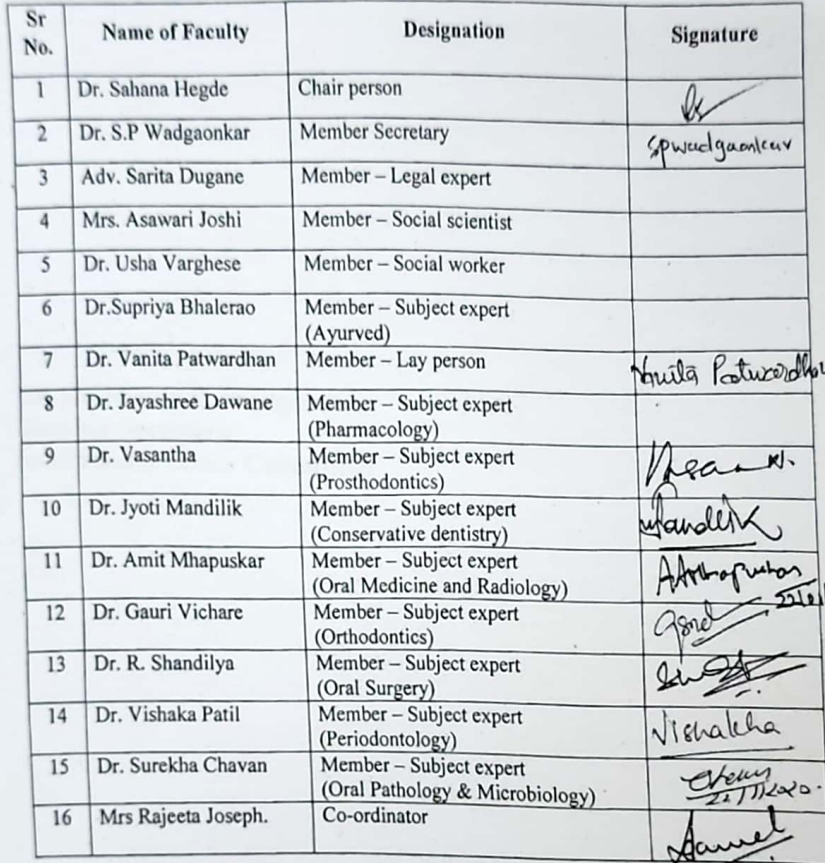 Sr No. Name of Faculty Designation Signature
1 Dr. Sahana Hegde Chair person
2 Dr. S.P Wadgaonkar Member Secretary Spwadgaonkar
3 Adv. Sarita Dugane Member – Legal expert
4 Mrs. Asawari Joshi Member – Social scientist
5 Dr. Usha Varghese Member – Social worker
6 Dr.Supriya Bhalerao Member – Subject expert
(Ayurved)
7 Dr. Vanita Patwardhan Member – Lay person Vanita Patwardhan
8 Dr. Jayashree Dawane Member – Subject expert
(Pharmacology)
9 Dr. Vasantha Member – Subject expert
(Prosthodontics)
10 Dr. Jyoti Mandilik Member – Subject expert
(Conservative dentistry)
11 Dr. Amit Mhapuskar Member – Subject expert
(Oral Medicine and Radiology)
12 Dr. Gauri Vichare Member – Subject expert
(Orthodontics)
13 Dr. R. Shandilya Member – Subject expert
(Oral Surgery)
14 Dr. Vishaka Patil Member – Subject expert Vishakha
(Periodontology)
15 Dr. Surekha Chavan Member – Subject expert
(Oral Pathology & Microbiology)
16 Mrs Rajeeta Joseph. Co-ordinator